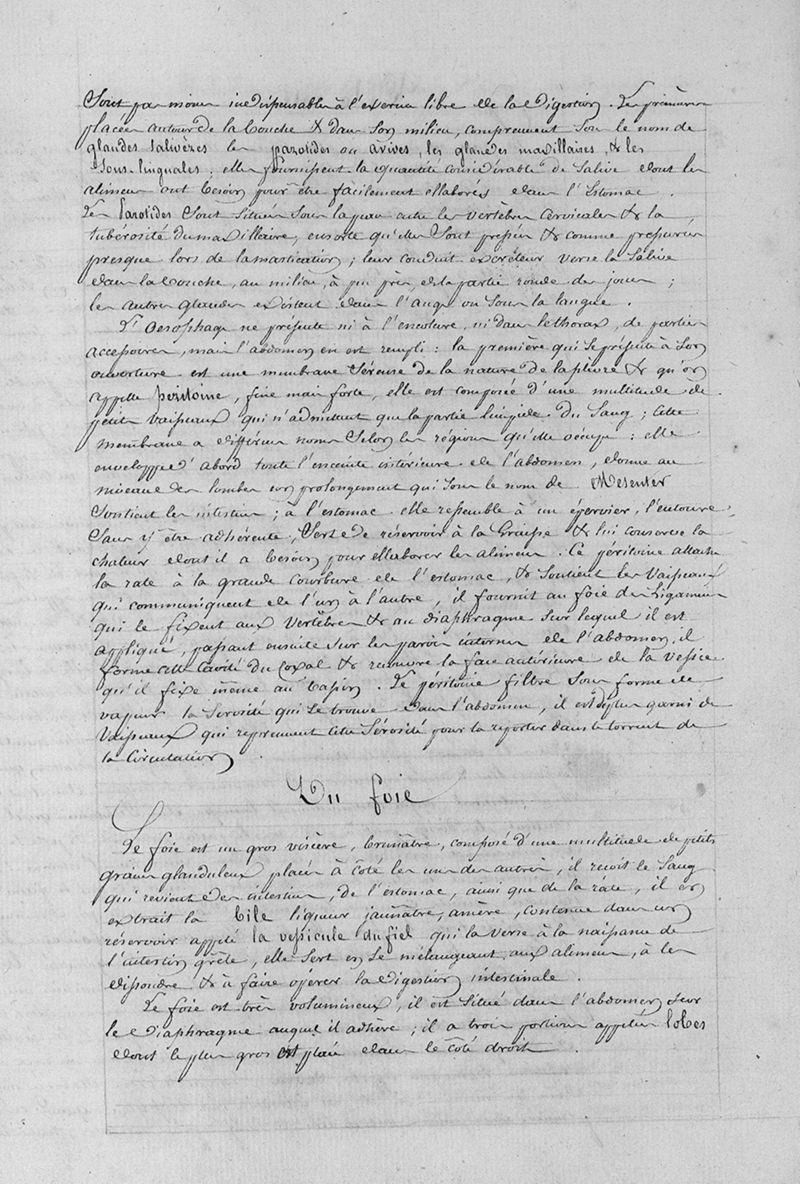 Sont pas moins indispensables à l'exercice libre de la Digestion. Les premières
placées autour de la bouche & dans son milieu, comprennent sous le nom de
glandes salivères les parotides ou avives, les glandes maxillaires, & les
Sous-linguales; elles fournissent la quantité considérable de Salive dont les
alimens ont besoin pour être facilement ellaborés dans l'Estomac.
Les Parotides Sont situées sous la peau entre les vertèbres cervicales & la
tubérosité du maxillaire, ensorte qu'elles Sont pressées & comme pressurées
presque lors de la mastication; leur conduit excréteur verse la Salive
dans la bouche, au milieu, à peu près, de la partie ronde des joues;
les autres glandes existent dans l'auge ou sous la langue.
L'Oesophage ne présente ni à l'encolure, ni dans le thorax, de parties
accessoires, mais l'abdomen en est rempli: la première qui se présente à son
ouverture est une membrane Séreuse de la nature de la plèvre & qu'on
appelle péritoine, fine mais forte, elle est composée d'une multitude de
petits vaisseaux qui n'admettent que la partie limpide du Sang; Cette
membrane a différens noms Selon les régions qu'elle occupe: elle
enveloppe d'abord toute l'enceinte intérieure de l'abdomen, donne au
niveau des lombes un prolongement qui sous le nom de Mésenter
Soutient les intestins; à l'estomac elle ressemble à un épervier, l'entoure
Sans y être adhérente, Sert de réservoir à la Graisse & lui conserve la
chaleur dont il a besoin pour ellaborer les alimens. Ce péritoine attache
la rate à la grande courbure de l'estomac, & Soutient les Vaisseaux
qui communiquent de l'un à l'autre, il fournit au foie des Ligamens
qui le fixent aux vertèbres & au diaphragme sur lequel il est
appliqué, passant ensuite sur les parois internes de l'abdomen, il
forme cette cavité du coxal & recouvre la face antérieure de la vessie
qu'il fixe même au bassin. Le péritoine filtre sous forme de
vapeurs la Sérosité qui se trouve dans l'abdomen, il est de plus garni de
Vaisseaux qui reprennent cette Sérosité pour la reporter dans le torrent de
la Circulation.
Du foie
Le foie est un gros viscère, brunâtre, composé d'une multitude de petits
grains glanduleux placés à côté les uns des autres, il reçoit le Sang
qui revient des intestins, de l'estomac, ainsi que de la rate, il en
extrait la bile liqueur jaunâtre, amère, contenue dans un
réservoir appelé la vessicule du fiel qui la verse à la naissance de
l'intestin grêle, elle sert en se mélangeant aux alimens, à les
dissoudre & à faire opérer la digestion intestinale.
Le foie est très volumineux, il est situé dans l'abdomen sur
le diaphragme auquel il adhère; il a trois portions appelées lobes
dont le plus gros est placé dans le côté droit.